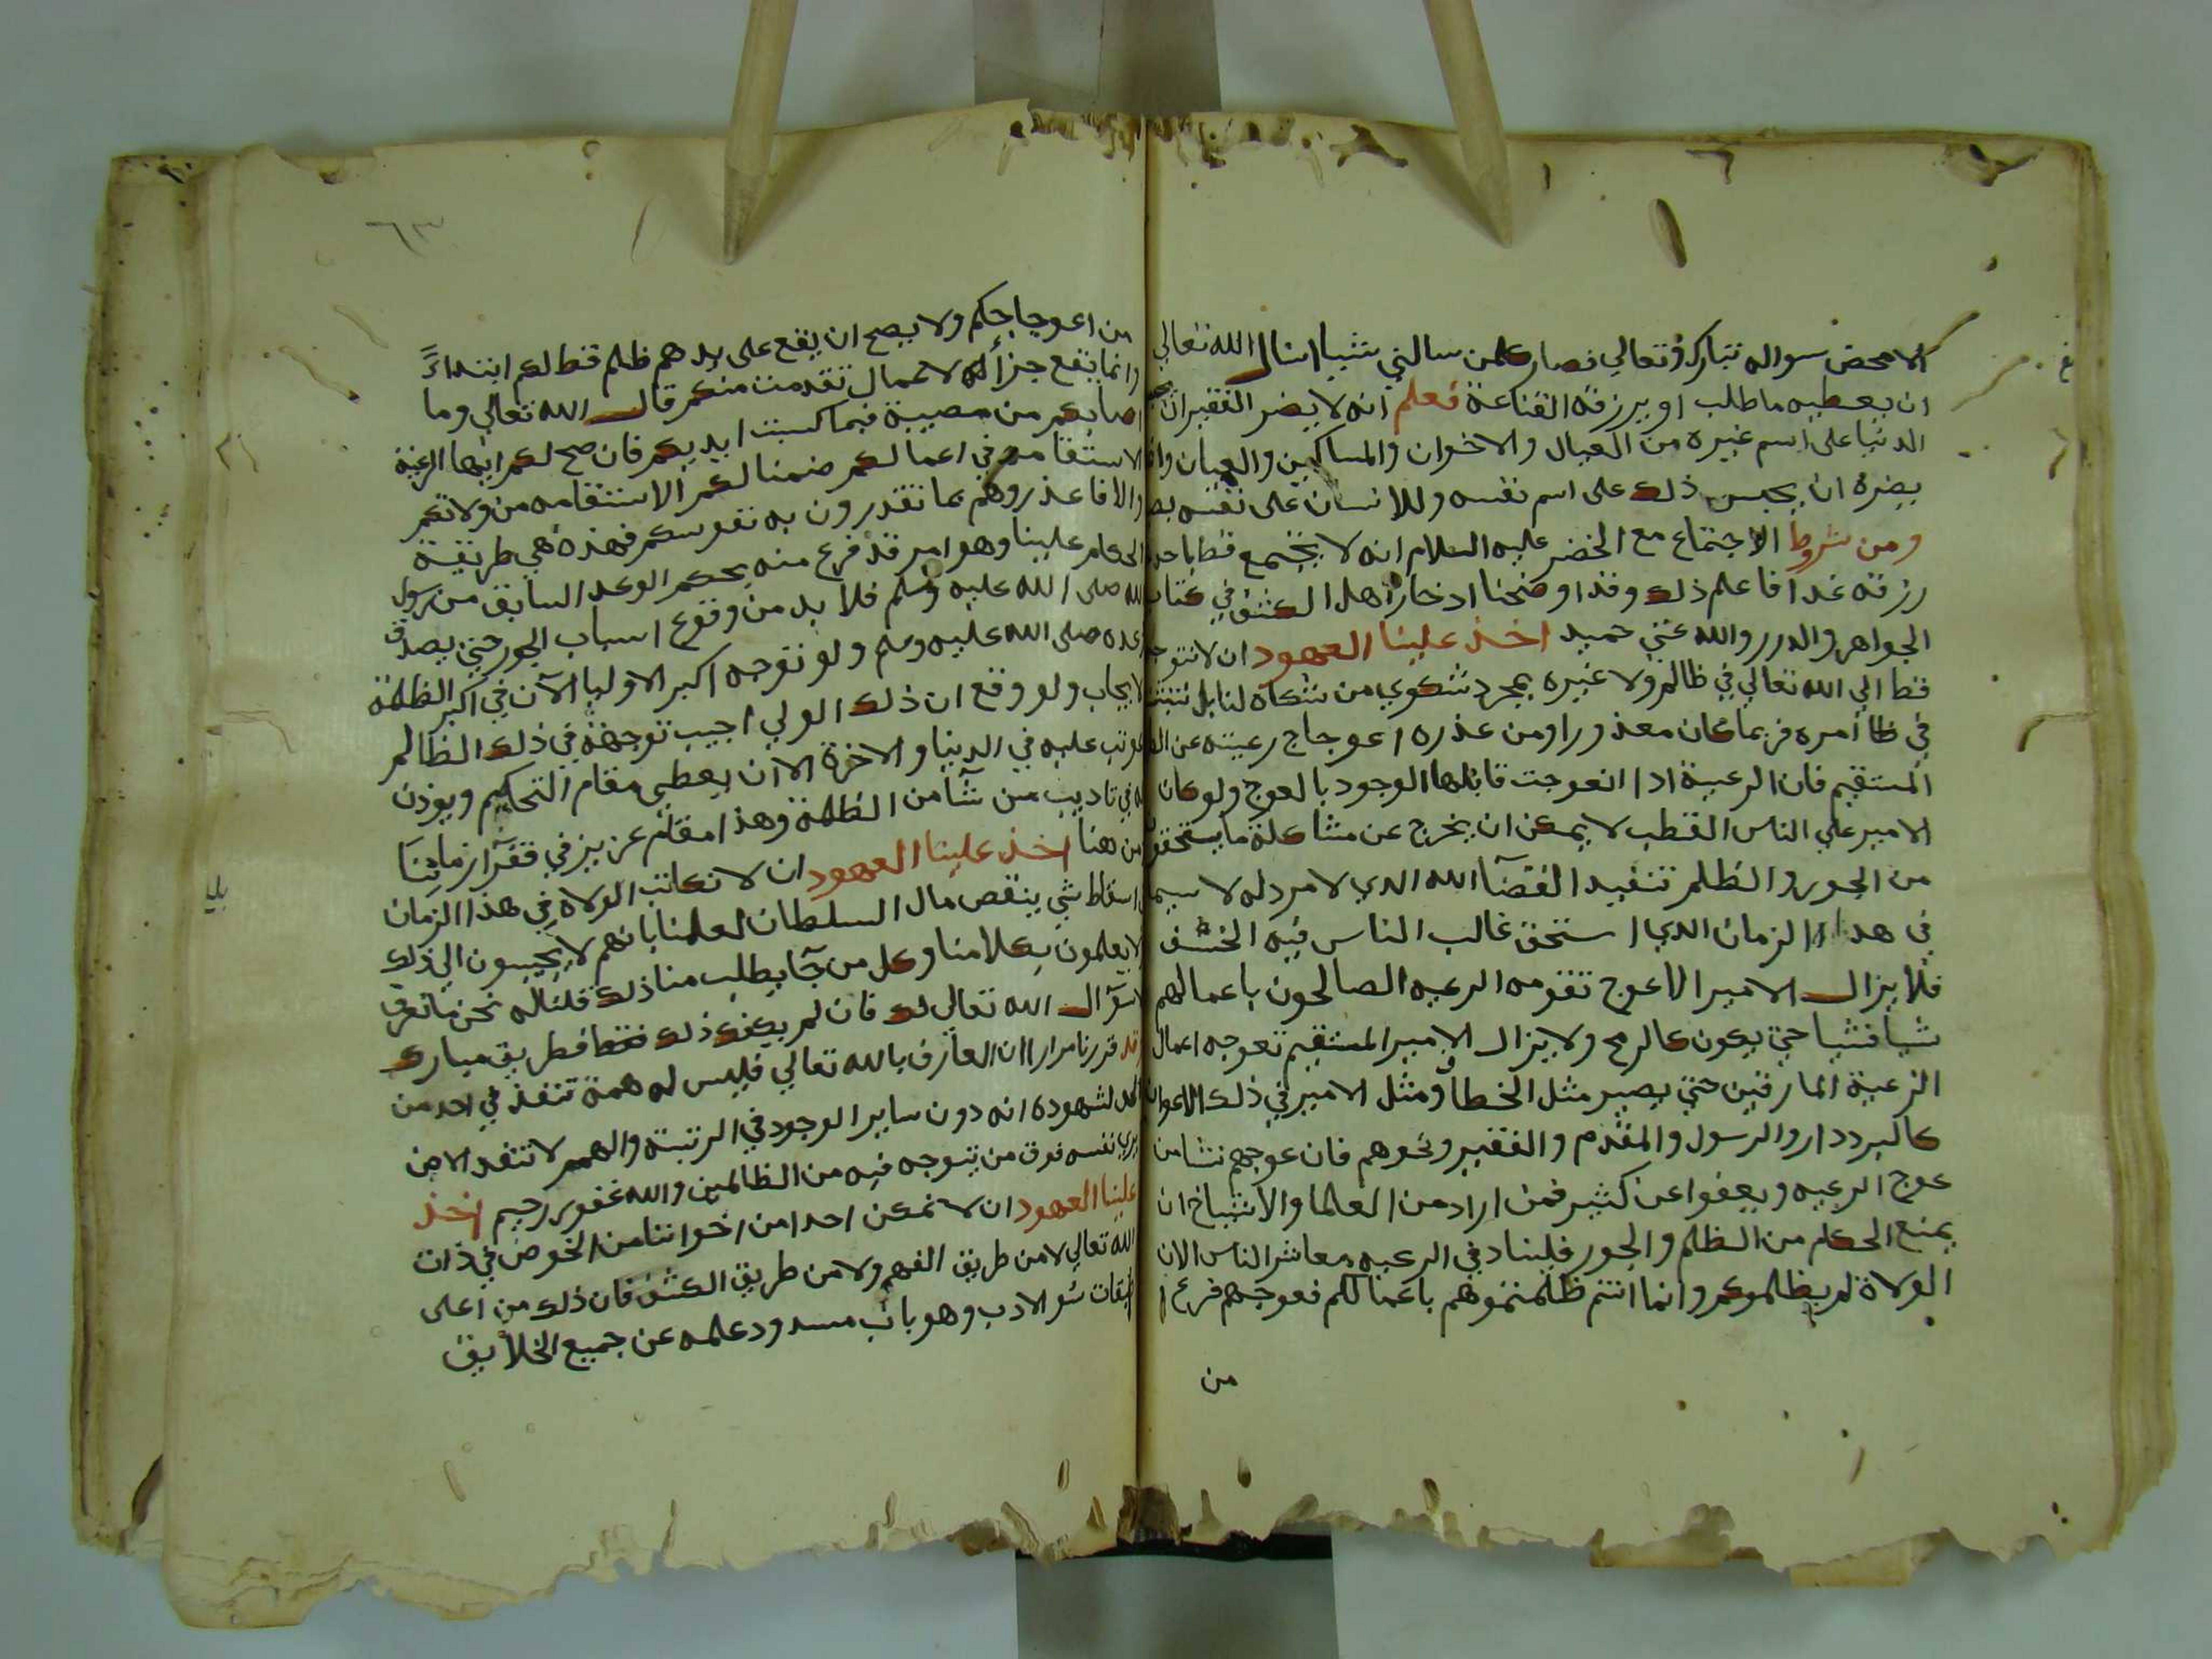 الا محض سواله تبارك وتعالي فصار كلمن سالني شيا اسال الله تعالي
ان يعطيه ما طلب او يرزقه القناعة فعلم انه لا يضر الفقير ان
الدنيا على اسم غيره من العيال والاخوان والمساكين والعميان وانما
يضره ان يحبس ذلك على اسم نفسه وللانسان على نفسه
ومن شروط الاجتماع مع الخضر عليه السلام انه لا يجتمع قط باحد
رزقه غدا فاعلم ذلك وقد اوضحنا ادخار اهل الكشف في كتاب
الجواهر والدرر والله غني حميد اخذ علينا العهود ان لا نتوجه
قط الي الله تعالي في ظالم ولا غيره بمجرد شكوي من شكاه لنا بل نتثبت
في ظا امره فربما كان معذورا ومن عذره اعوجاج رعيته عن
المستقيم فان الرعية اذا انعوجت قابلها الوجود بالعوج ولو كان
الامير علي الناس القطب لا يمكن ان يخرج عن مشاكلة ما يستحقون
من الجور والظلم تنفيد القضآ الله الدي لا مرد له لا سيما
في هدا الزمان الدي استحق غالب الناس فيه الخسف
فلا يزال الامير الاعوج تقومه الرعيه الصالحون باعمالهم
شيا فشيا حتي يكون كالرمح ولا يزال الامير المستقيم تعوجه اعمال
الرعية المارقين حتي يصير مثل الخطاف ومثل الامير في ذلك الاعوان
كالبرددار والرسول والمقدم والفقير ونحوهم فان عوجهم نشا من
عوج الرعيه ويعفوا عن كثير فمن اراد من العلما والاشياخ ان
يمنع الحكام من الظلم والجور فليناد في الرعيه معاشر الناس الان
الولاة لم يظلموكم وانما انتم ظلمتموهم باعمالكم فعوجهم فرع
من
من اعوجاجكم ولا يصح ان يقع على يدهم ظلم قط لكم ابتداءً
وانما يقع جزاءً لاعمال تقدمت منكم قال الله تعالي وما
اصابكم من مصيبة فبما كسبت ايديكم فان صح لكم ايها الرعية
الاستقامه في اعمالكم ضمنا لكم الاستقامه من ولاتكم
والا فاعذروهم بما تقدرون به نفوسكم فهذه هي طريقة
الحكام علينا وهو امر قد فرغ منه بحكم الوعد السابق من رسول
الله صلى الله عليه وسلم فلا بد من وقوع اسباب الجور حتي يصدق
وعده صلى الله عليه وسلم ولو توجه اكبر الاوليا الآن في اكبر الظلمة
لا يجاب ولو وقع ان ذلك الولي اجيب توجهه في ذلك الظالم
عوتب عليه في الدينا والاخرة الا ان يعطى مقام التحكيم ويوذن
له في تاديب من شآ من الظلمة وهذا مقام عزيز في فقرآ زماننا
من هنا اخذ علينا العهود ان لا نكاتب الولاة في هذا الزمان
اسقاط شي ينقص مال السلطان لعلمنا بانهم لا يجيبون الي ذلك
لا يعملون بكلامنا وكل من جآ يطلب منا ذلك قلنا له نحن ما نعرف
الا سؤال الله تعالي لك فان لم يكفك ذلك فقط فطريق مبارك
قد قررنا مرارا ان العارف بالله تعالي فليس له همة تنفذ في احد من
الخلق لشهوده انه دون ساير الوجود في الرتبة والهمم لا تنفد الا من
يري نفسه فوق من يتوجه فيه من الظالمين والله غفور رحيم اخذ
علينا العهود ان لا نمكن احدا من اخواننا من الخوض في ذات
الله تعالي لا من طريق الفهم ولا من طريق الكشف فان ذلك من اعلى
طبقات سو الادب وهو باب مسدود علمه عن جميع الخلايق